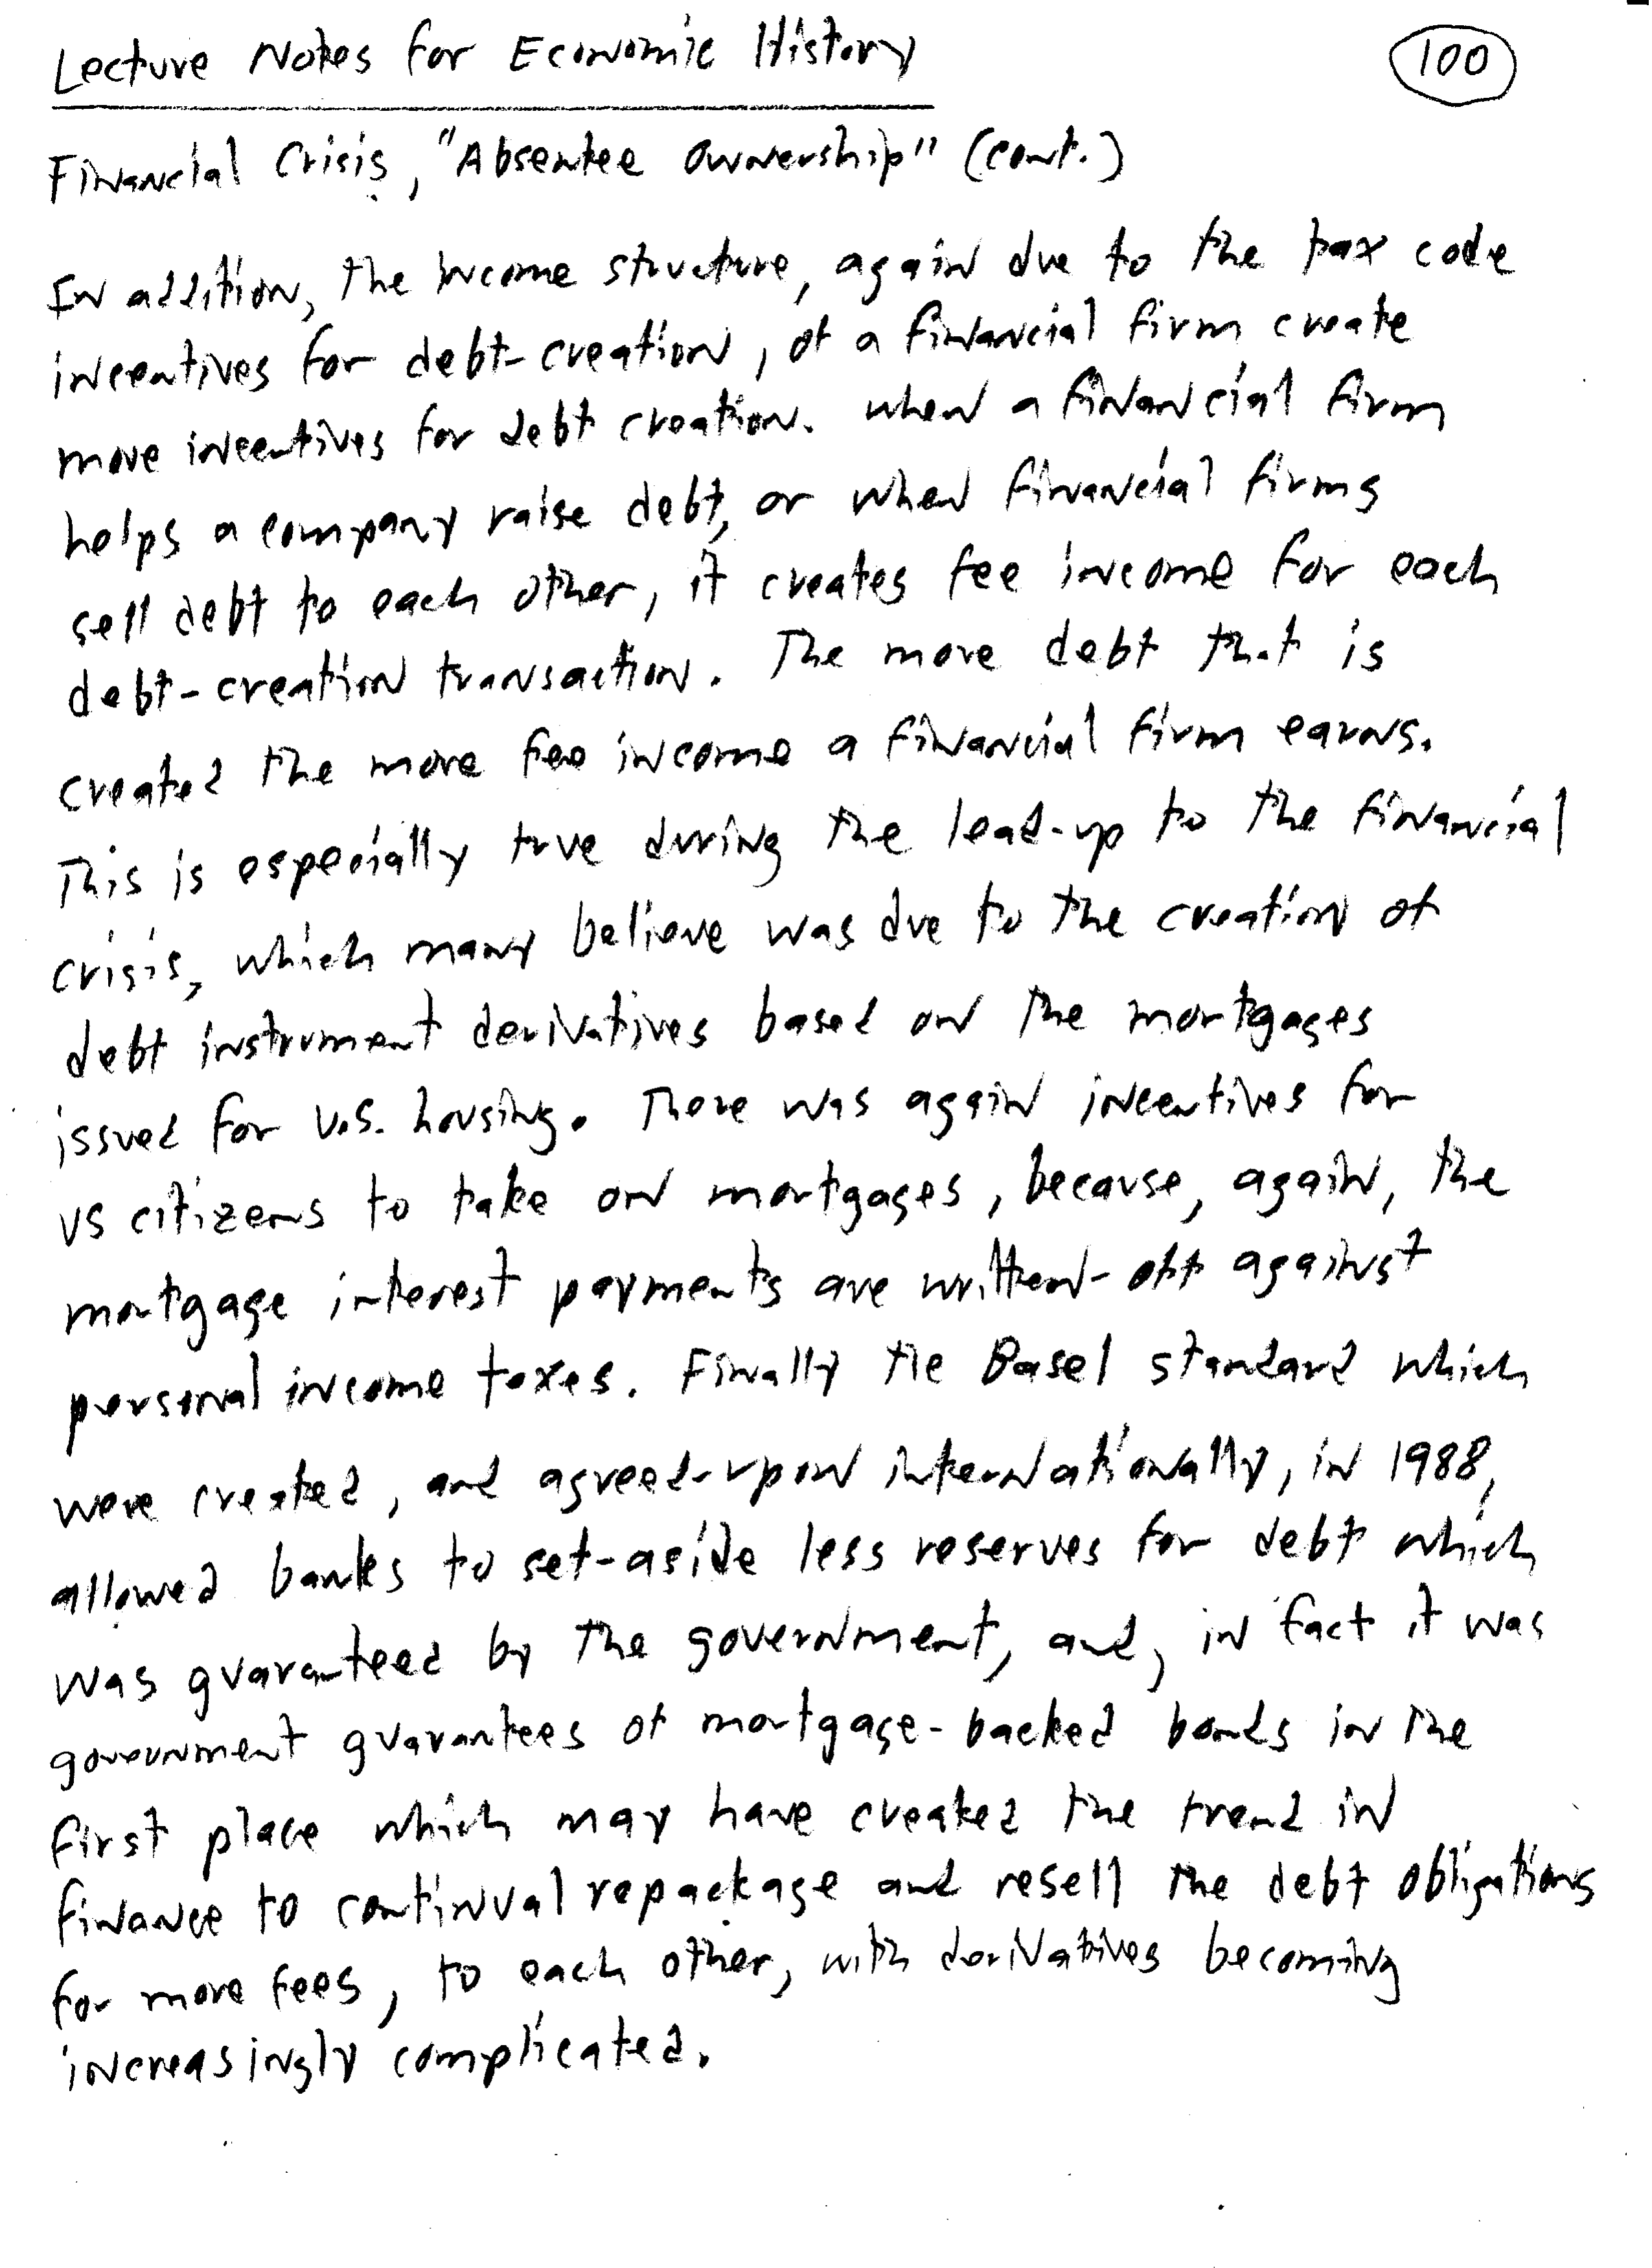 Lecture Notes for Economic History
100
Financial Crisis, "Absentee Ownership" (cont.)
In addition, the income structure, again due to the tax code
incentives for debt-creation, of a financial firm create
more incentives for debt creation. when a financial firm
helps a company raise debt, or when financial firms
sell debt to each other, it creates fee income for each
debt-creation transaction. The more debt that is
created the more fee income a financial firm earns.
This is especially true during the lead-up to the financial
crisis, which many believe was due to the creation of
debt instrument derivatives based on the mortgages
issued for U.S. housing. There was again incentives for
US citizens to take on mortgages, because, again, the
mortgage interest payments are written-off against
personal income taxes. Finally the Basel standard which
were created, and agreed-upon internationally, in 1988,
allowed banks to set-aside less reserves for debt which
was guaranteed by the government, and, in fact it was
government guarantees of mortgage-backed bonds in the
first place which may have created the trend in
finance to continual repackage and resell the debt obligations
for more fees, to each other, with derivatives becoming
increasingly complicated.